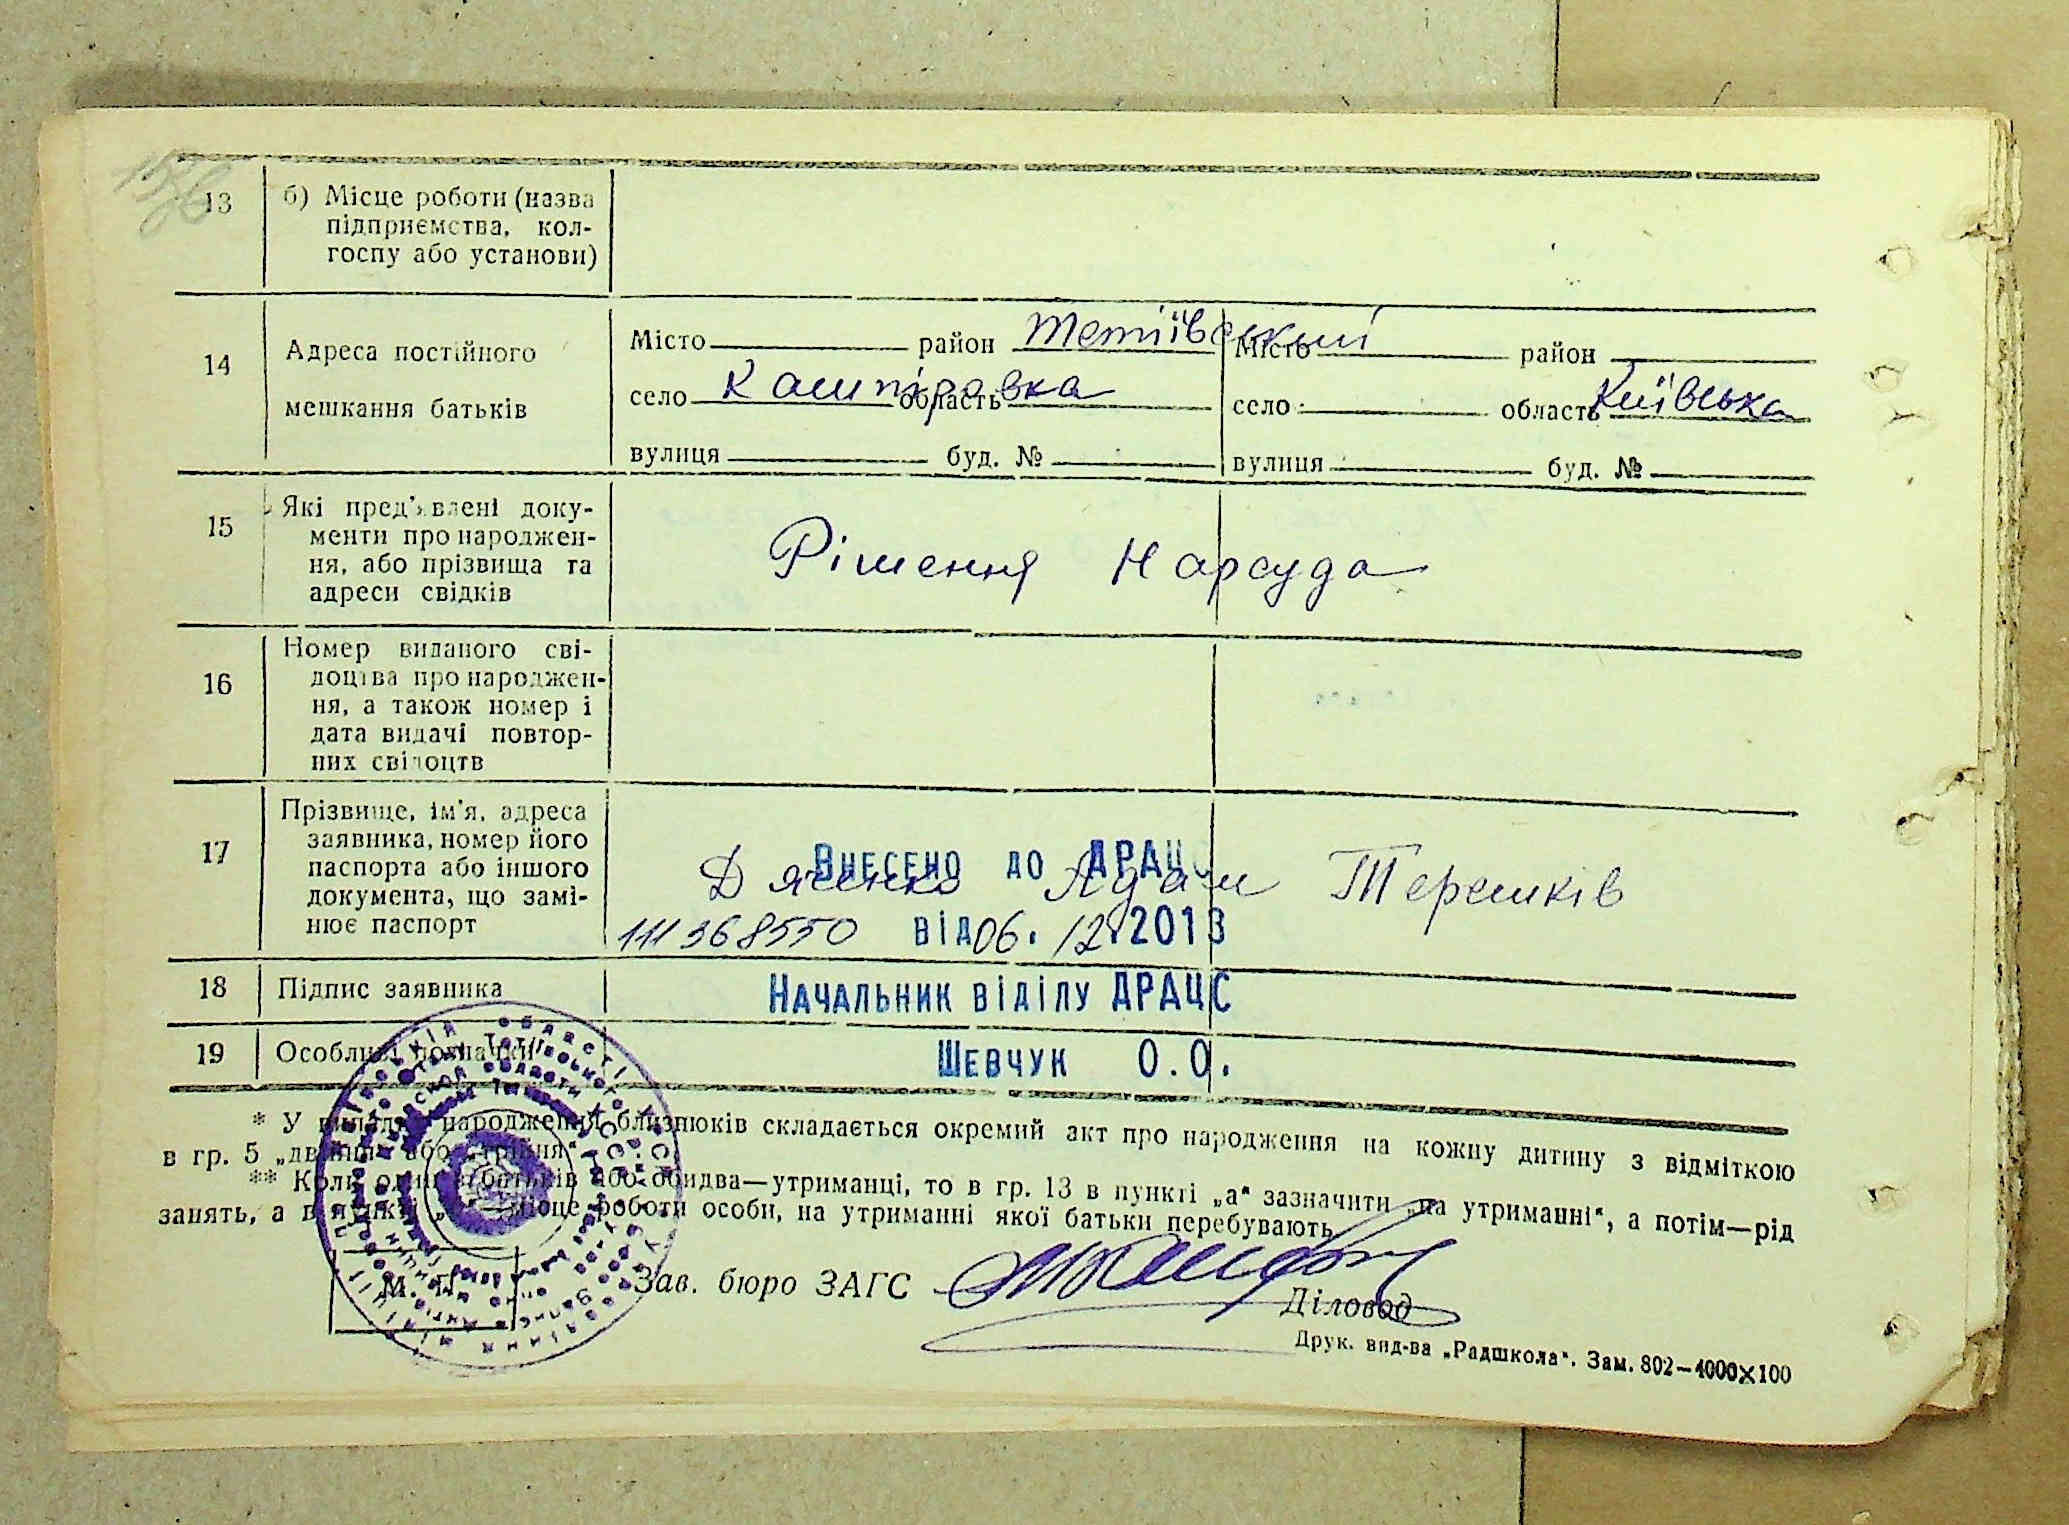 13 б) Місце роботи (назва
підприємства, кол-
госпу або установи)
14 Адреса постійного
мешкання батьків
Місто район Тетіївський Місто район
село Кашпірівка область село область Київська
вулиця буд. № вулиця буд. №
15 Які пред'явлені доку-
менти про народжен-
ня, або прізвища та
адреси свідків
Рішення Нарсуда
16 Номер виданого сві-
доцтва про народжен-
ня, а також номер і
дата видачі повтор-
них свідоцтв
17 Прізвище, ім'я, адреса
заявника, номер його
паспорта або іншого
документа, що замі-
нює паспорт
Внесено до ДРАЦС
Дяченко Адам Терешків
111368550 від 06.12.2013
18 Підпис заявника
Начальник відділу ДРАЦС
19 Особливі позначки
Шевчук О.О.
* У випадку народження близнюків складається окремий акт про народження на кожну дитину з відміткою
в гр. 5 „двійня" або „трійня"
** Коли один з батьків або обидва—утриманці, то в гр. 13 в пункті „а" зазначити „на утриманні", а потім—рід
занять, а в пункті „б" місце роботи особи, на утриманні якої батьки перебувають
М. П. Зав. бюро ЗАГС
Діловод
Друк. вид-ва „Радшкола". Зам. 802—4000×100